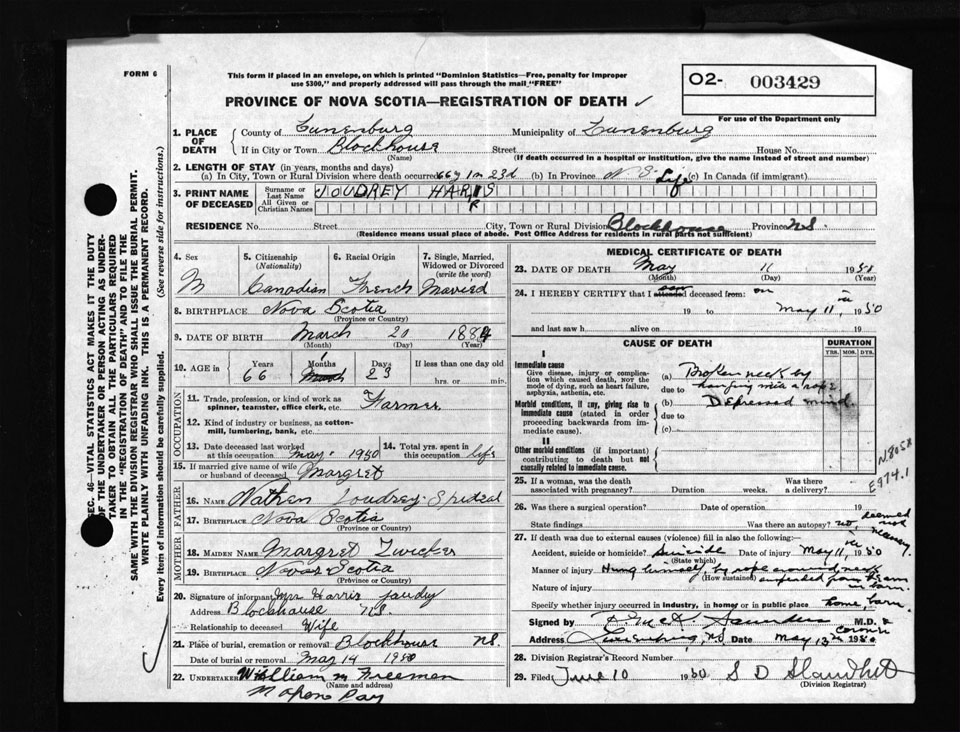 FORM 6
This form if placed in an envelope, on which is printed "Dominion Statistics—Free, penalty for improper
use $300," and properly addressed will pass through the mail "FREE"
O2- 003429
PROVINCE OF NOVA SCOTIA—REGISTRATION OF DEATH ✓
For use of the Department only
SEC. 46—VITAL STATISTICS ACT MAKES IT THE DUTY
OF THE UNDERTAKER OR PERSON ACTING AS UNDER-
TAKER TO OBTAIN ALL THE PARTICULARS REQUIRED
IN THE "REGISTRATION OF DEATH" AND TO FILE THE
SAME WITH THE DIVISION REGISTRAR WHO SHALL ISSUE THE BURIAL PERMIT.
WRITE PLAINLY WITH UNFADING INK. THIS IS A PERMANENT RECORD.
Every item of information should be carefully supplied. (See reverse side for instructions.)
1. PLACE OF DEATH County of Lunenburg Municipality of Lunenburg
If in City or Town Blockhouse Street House No.
(Name) (If death occurred in a hospital or institution, give the name instead of street and number)
2. LENGTH OF STAY (in years, months and days)
(a) In City, Town or Rural Division where death occurred 66y 1m 23d (b) In Province N.S. Life (c) In Canada (if immigrant)
3. PRINT NAME OF DECEASED Surname or Last Name JOUDREY HARIS
R
All Given or Christian Names
RESIDENCE No. Street City, Town or Rural Division Blockhouse Province NS
(Residence means usual place of abode. Post Office Address for residents in rural parts not sufficient)
4. Sex 5. Citizenship (Nationality) 6. Racial Origin 7. Single, Married, Widowed or Divorced (write the word)
M Canadian French Married
8. BIRTHPLACE Nova Scotia
(Province or Country)
9. DATE OF BIRTH March 20 1884
(Month) (Day) (Year)
10. AGE in Years Months Days If less than one day old
66 1 23 hrs. or min.
OCCUPATION
11. Trade, profession, or kind of work as spinner, teamster, office clerk, etc. Farmer
12. Kind of industry or business, as cotton-mill, lumbering, bank, etc.
13. Date deceased last worked at this occupation May 1950 14. Total yrs. spent in this occupation Life
15. If married give name of wife or husband of deceased Margret
FATHER
16. Name Nathen Joudrey
17. BIRTHPLACE Nova Scotia
(Province or Country)
MOTHER
18. MAIDEN NAME Margret Zwicker
19. BIRTHPLACE Nova Scotia
(Province or Country)
20. Signature of informant Mrs Harris Jaudry
Address Blockhouse NS.
Relationship to deceased Wife
21. Place of burial, cremation or removal Blockhouse NS.
Date of burial or removal May 14 1950
22. UNDERTAKER William M Freeman
(Name and address)
MEDICAL CERTIFICATE OF DEATH
23. DATE OF DEATH May 11 1950
(Month) (Day) (Year)
24. I HEREBY CERTIFY that I attended saw deceased from: on
19 to May 11th 1950
and last saw h alive on 19
CAUSE OF DEATH DURATION
YRS. MOS. DYS.
I
Immediate cause
Give disease, injury or complication which caused death, NOT the mode of dying, such as heart failure, asphyxia, asthenia, etc.
(a) Broken neck by
due to hanging with a rope
Morbid conditions, if any, giving rise to immediate cause (stated in order proceeding backwards from immediate cause).
(b) Depressed mind.
due to
(c)
II
Other morbid conditions (if important) contributing to death but not causally related to immediate cause.
N805X
E974.1
25. If a woman, was the death associated with pregnancy? Duration weeks. Was there a delivery?
26. Was there a surgical operation? Date of operation 19
State findings Was there an autopsy? no, deemed not necessary
27. If death was due to external causes (violence) fill in also the following:—
Accident, suicide or homicide? Suicide Date of injury May 11th 1950
(State which)
Manner of injury Hung himself, by rope around neck
(How sustained)
Nature of injury suspended from beam in barn.
Specify whether injury occurred in industry, in home or in public place home, barn.
Signed by Saunders M.D. & Coroner
Address Lunenburg, NS Date May 13th 1950
28. Division Registrar's Record Number
29. Filed June 10 1950 S D
(Division Registrar)